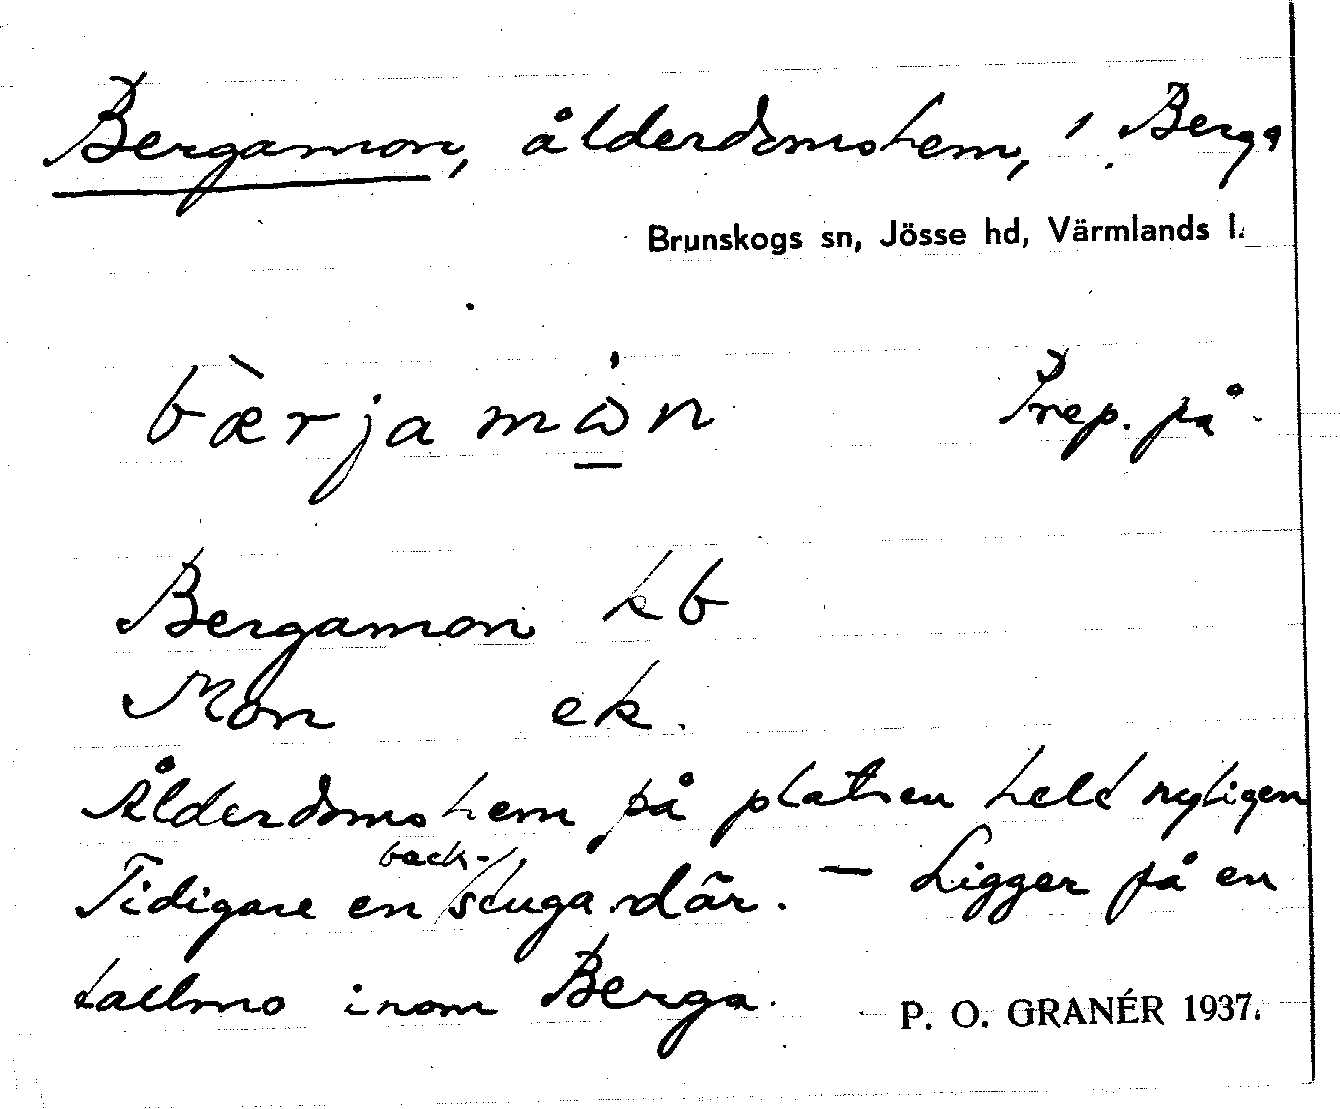 Bergamon, ålderdomshem, i Berga
Brunskogs sn, Jösse hd, Värmlands l.
bæ̀rjamω̲̇n Prep. på.
Bergamon kb
Mon ek.
Ålderdomshem på platsen helt nyligen
Tidigare en back-stuga där. – Ligger på en
tallmo inom Berga.
P. O. GRANÉR 1937.